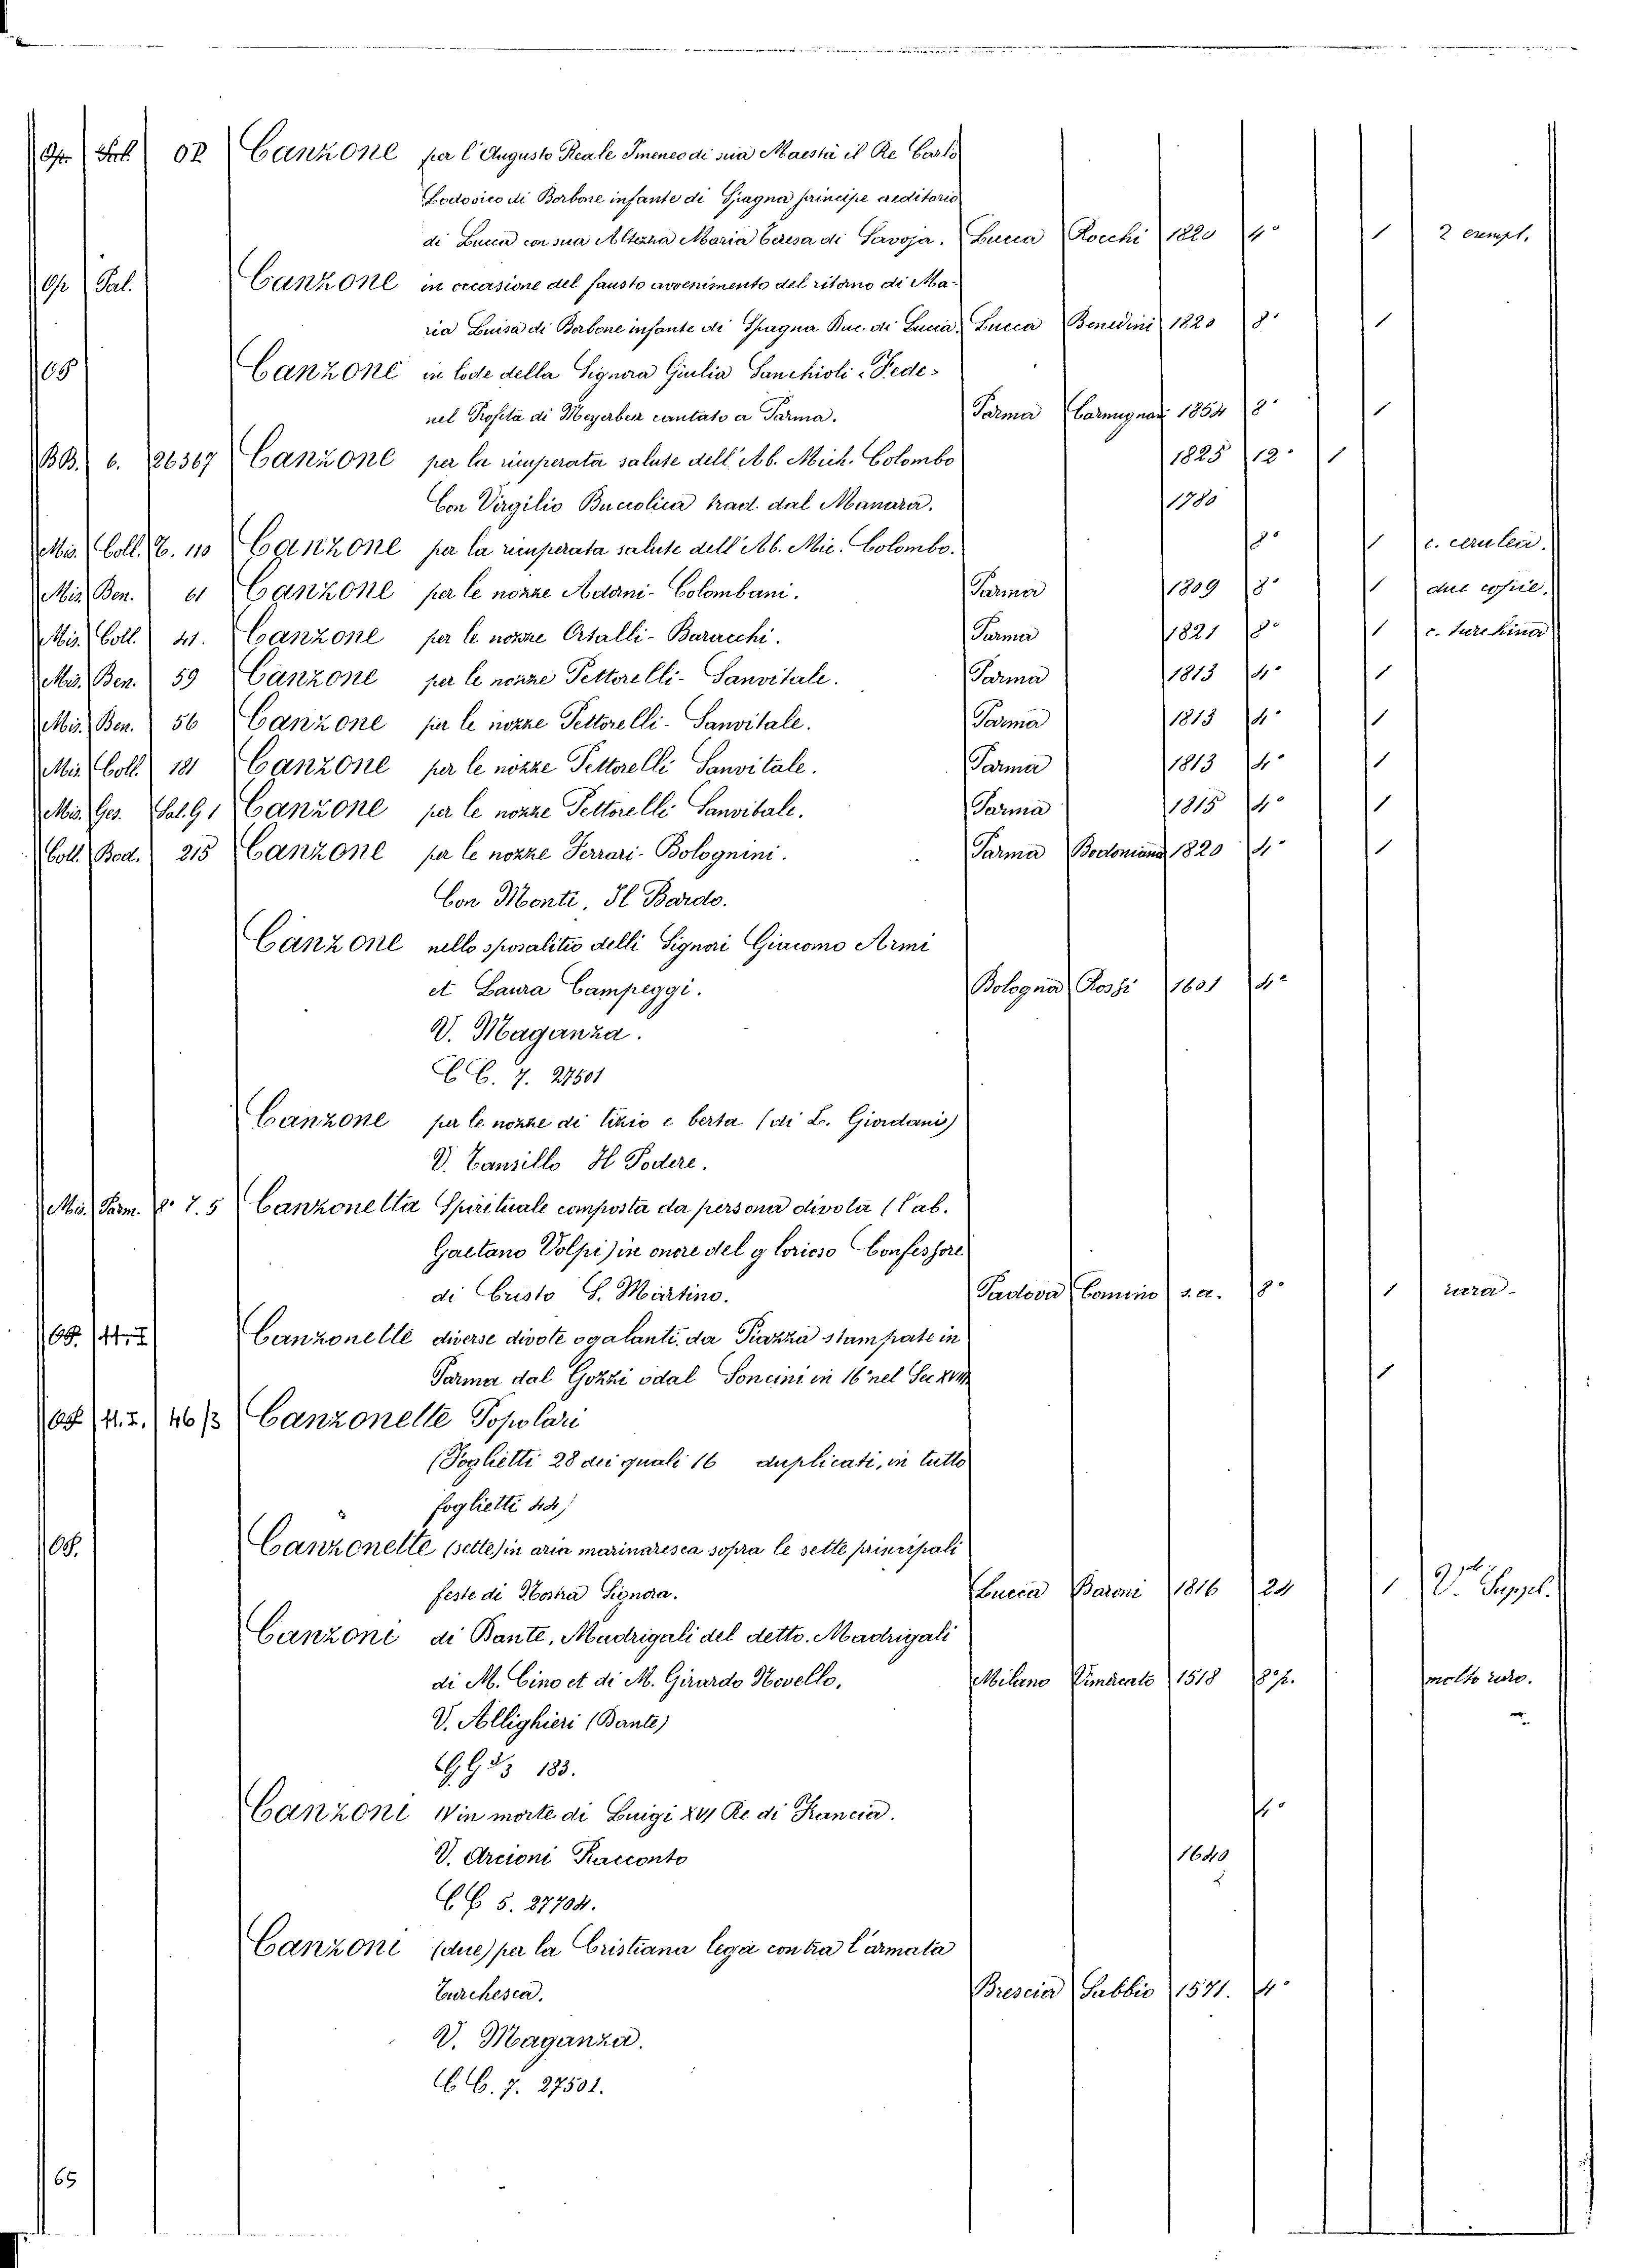 Op. Pal. 02 Canzone per l'Augusto Reale Imeneo di sua Maestà il Re Carlo
Lodovico di Borbone infante di Spagna principe ereditario
di Lucca con sua Altezza Maria Teresa di Savoja. Lucca Rocchi 1820 4° 1 2 exempl.
Op. Pal. Canzone in occasione del fausto avvenimento del ritorno di Ma-
ria Luisa di Borbone infante di Spagna Duc. di Lucca. Lucca Benedini 1820 8° 1
Canzone in lode della Signora Giulia Sanchioli - Fede -
nel Profeta di Meyerbeer cantato a Parma. Parma Carmignani 1854 8° 1
BB. 6. 26367 Canzone per la rimperata salute dell'Ab. Mich. Colombo 1825 12° 1
Con Virgilio Buccolica trad. dal Manara. 1780
Mis. Coll. T. 110 Canzone per la rimperata salute dell'Ab. Mic. Colombo. 8° 1 c. cerulea.
Mis. Ben. 61 Canzone per le nozze Adani-Colombani. Parma 1809 8° 1 due copie.
Mis. Coll. 41. Canzone per le nozze Ortalli-Baracchi. Parma 1821 8° 1 c. turchina
Mis. Ben. 59 Canzone per le nozze Pettorelli-Sanvitale. Parma 1813 4° 1
Mis. Ben. 56 Canzone per le nozze Pettorelli-Sanvitale. Parma 1813 4° 1
Mis. Coll. 181 Canzone per le nozze Pettorelli Sanvitale. Parma 1813 4° 1
Mis. Ges. Pal. G1 Canzone per le nozze Pettorelli Sanvitale. Parma 1815 4° 1
Coll. Bod. 215 Canzone per le nozze Ferrari-Bolognini. Parma Bodoniana 1820 4° 1
Con Monti, Il Bardo.
Canzone nello sposalitio delli Signori Giacomo Armi
et Laura Campeggi. Bologna Rossi 1601 4°
V. Maganza.
CC. 7. 27501
Canzone per le nozze di tizio e berta (di L. Giordani)
V. Tansillo Il Podere.
Mis. Parm. 8° T. 5 Canzonetta Spirituale composta da persona divota (l'ab.
Gaetano Volpi) in onore del glorioso Confessore
di Cristo S. Martino. Padova Comino s.a. 8° 1 rara
Canzonette diverse divote o galanti da Piazza stampate in
Parma dal Gozzi o dal Soncini in 16° nel Sec XVIII 1
46/3 Canzonette Popolari
(Foglietti 28 dei quali 16 duplicati, in tutto
foglietti 44)
Canzonette (sette) in aria marinaresca sopra le sette principali
feste di Nostra Signora. Lucca Baroni 1816 24 1 V. Suppl.
Canzoni di Dante, Madrigali del detto. Madrigali
di M. Cino et di M. Girardo Novello. Milano Vimercato 1518 8° p. molto raro.
V. Allighieri (Dante)
GG 23 183.
Canzoni IV in morte di Luigi XVI Re di Francia. 4°
V. Arcioni Racconto 1640
CC 5. 27704.
Canzoni (due) per la Cristiana lega contra l'armata
Turchesca. Brescia Sabbio 1571. 4°
V. Maganza.
CC. 7. 27501.
65